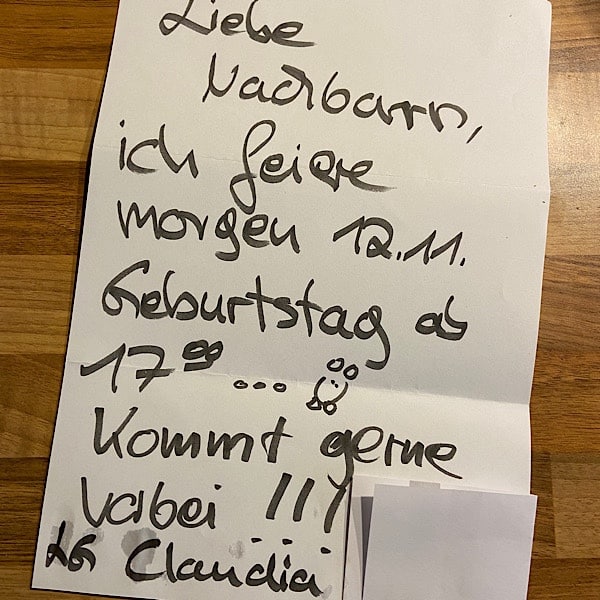 Liebe
Nachbarn,
ich feiere
morgen 12.11.
Geburtstag ab
17⁰⁰ ...
Kommt gerne
vorbei !!!
LG Claudia